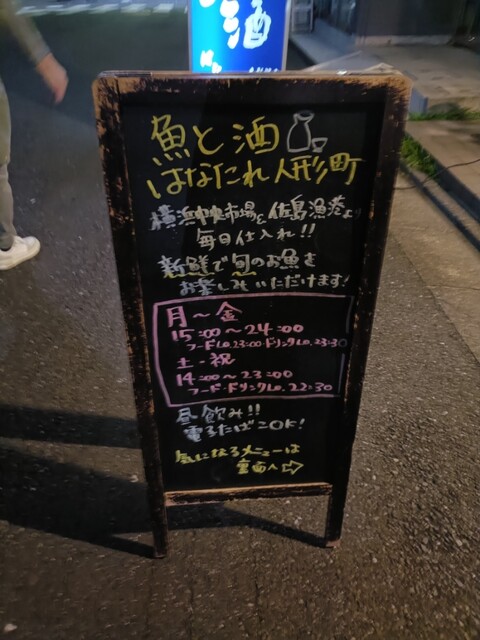 酒
魚と酒
はなたれ 人形町
横浜中央市場と佐島漁港より
毎日仕入れ!!
新鮮で旬のお魚を
お楽しみいただけます!
月〜金
15:00〜24:00
フードLo.23:00・ドリンクLo.23:30
土・祝
14:00〜23:00
フード・ドリンクLo.22:30
昼飲み!!
電子たばこOK!
気になるメニューは
裏面へ⇨